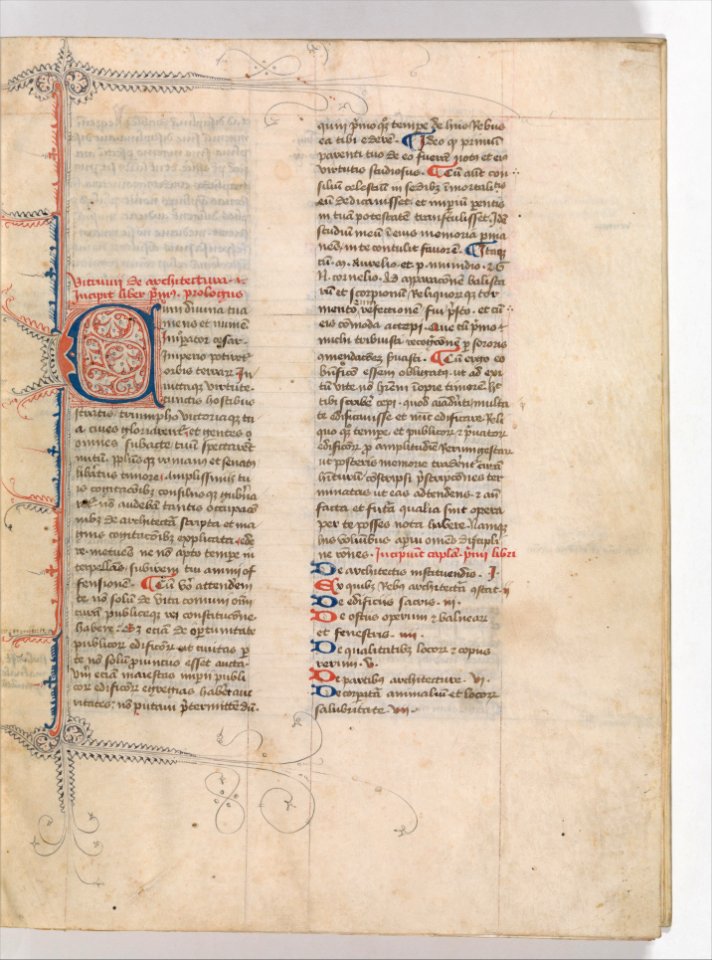 Vitruuii de architectura ·
Incipit liber p̄m⁹ · prologus
Cum diuina tua
mens et numen
Imꝑator cesar
Imperio potiret᷑
orbis terrarꝫ In
uictaqꝫ virtute
cunctis hostibus
stratis triumpho victoriaqꝫ tu
a ciues gloriarent᷑ et gentes o
omnes subacte tuū spectarēt
nutū pp̄lusqꝫ romanus et senatꝰ
lib̄atus timore Amplissimis tu
is cogitac̄oībꝫ consiliisqꝫ gub̄na
ret᷑ nō audebā tantis occupac̄o
nibꝫ de architectā scripta et ma
gnis cogitac̄oībꝫ explicata ede
re metuens ne nō apto tempe in
terpellans subirem tui animi of
fensionē · Cū v̄o attendem
te nō solū de vita com̄uni om̄
curā publiceqꝫ rei constituc̄one
habere Sꝫ eciā de oportunitate
publicorꝫ edificiorꝫ ut ciuitas ꝑ
te nō solū ꝓuinciis esset aucta
Vm̄ eciā maiestas impii publi
corꝫ edificiorꝫ egregias haberet auc
titates nō putaui p̄termittēdū
quin p̄mo qꝫ tempe de hiis rebus
ea tibi ederē · Ideo qꝫ primū
parenti tuo de eo fuerā notꝰ et eiꝰ
virtutis studiosus · Cū aūt con
siliū celestiū in sedibꝫ īmortalitꝭ
eū dedicauisset et imꝑiū ꝑentis
in tuā potestatē transtulisset · Idē
studiū meū ī eius memoria ꝑma
nēs in te contulit fauorē · Itaqꝫ
cū · M · Aurelio et · p · mindio · et G
N · cornelio · Ad apparac̄onē balista
rū et scorpionū Reliquorūqꝫ tor
mentorꝫ refectionē fui p̄sto · et cū
eis cōmoda accepi · Que cū p̄mo
michi tribuisti recognic̄onē ꝑ sororis
cōmendac̄oēꝫ seruasti · Cū ergo eo
bn̄ficō essem obligatꝰ ut ad exi
tū vite nō hrēm inopie timorē hͨ
tibi scribe᷑ cepi · quod aīaduti multa
te edificauisse et nūc edificare Reli
quo qꝫ tempe et publicorꝫ et p̄uatorꝫ
edificiorꝫ ꝓ amplitudīe Rerumgestarꝫ
ut posteris memorie tradent᷑ curā
hīturū cōscripsi p̄scripc̄ones ter
minatas ut eas adtendens et aūt
facta et futā qualia sint opera
per te posses nota habere Namqꝫ
hiis volūībus aꝑui om̄es discipli
ne rōnes · Incipiūt capl̄a · p̄mi libri
De architectis instituendis · I ·
Ex quibꝫ Rebꝫ architectā ɔstat · ii
De edificiis sacris · iii ·
De ostiis operum et balnearꝫ
et fenestris · iiii ·
De qualitatibꝫ locorꝫ et copiis
rerum · V ·
De partibus architecture · VI ·
De corꝑibꝰ animaliū et locorꝫ
salubritate VII ·